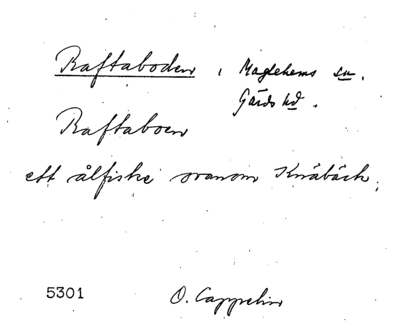 Raftaboden, Maglehems sn.
Gärds hd.
Raftaboen
ett ålfiske ovanom Knäbäck.
5301 O. Cappelin